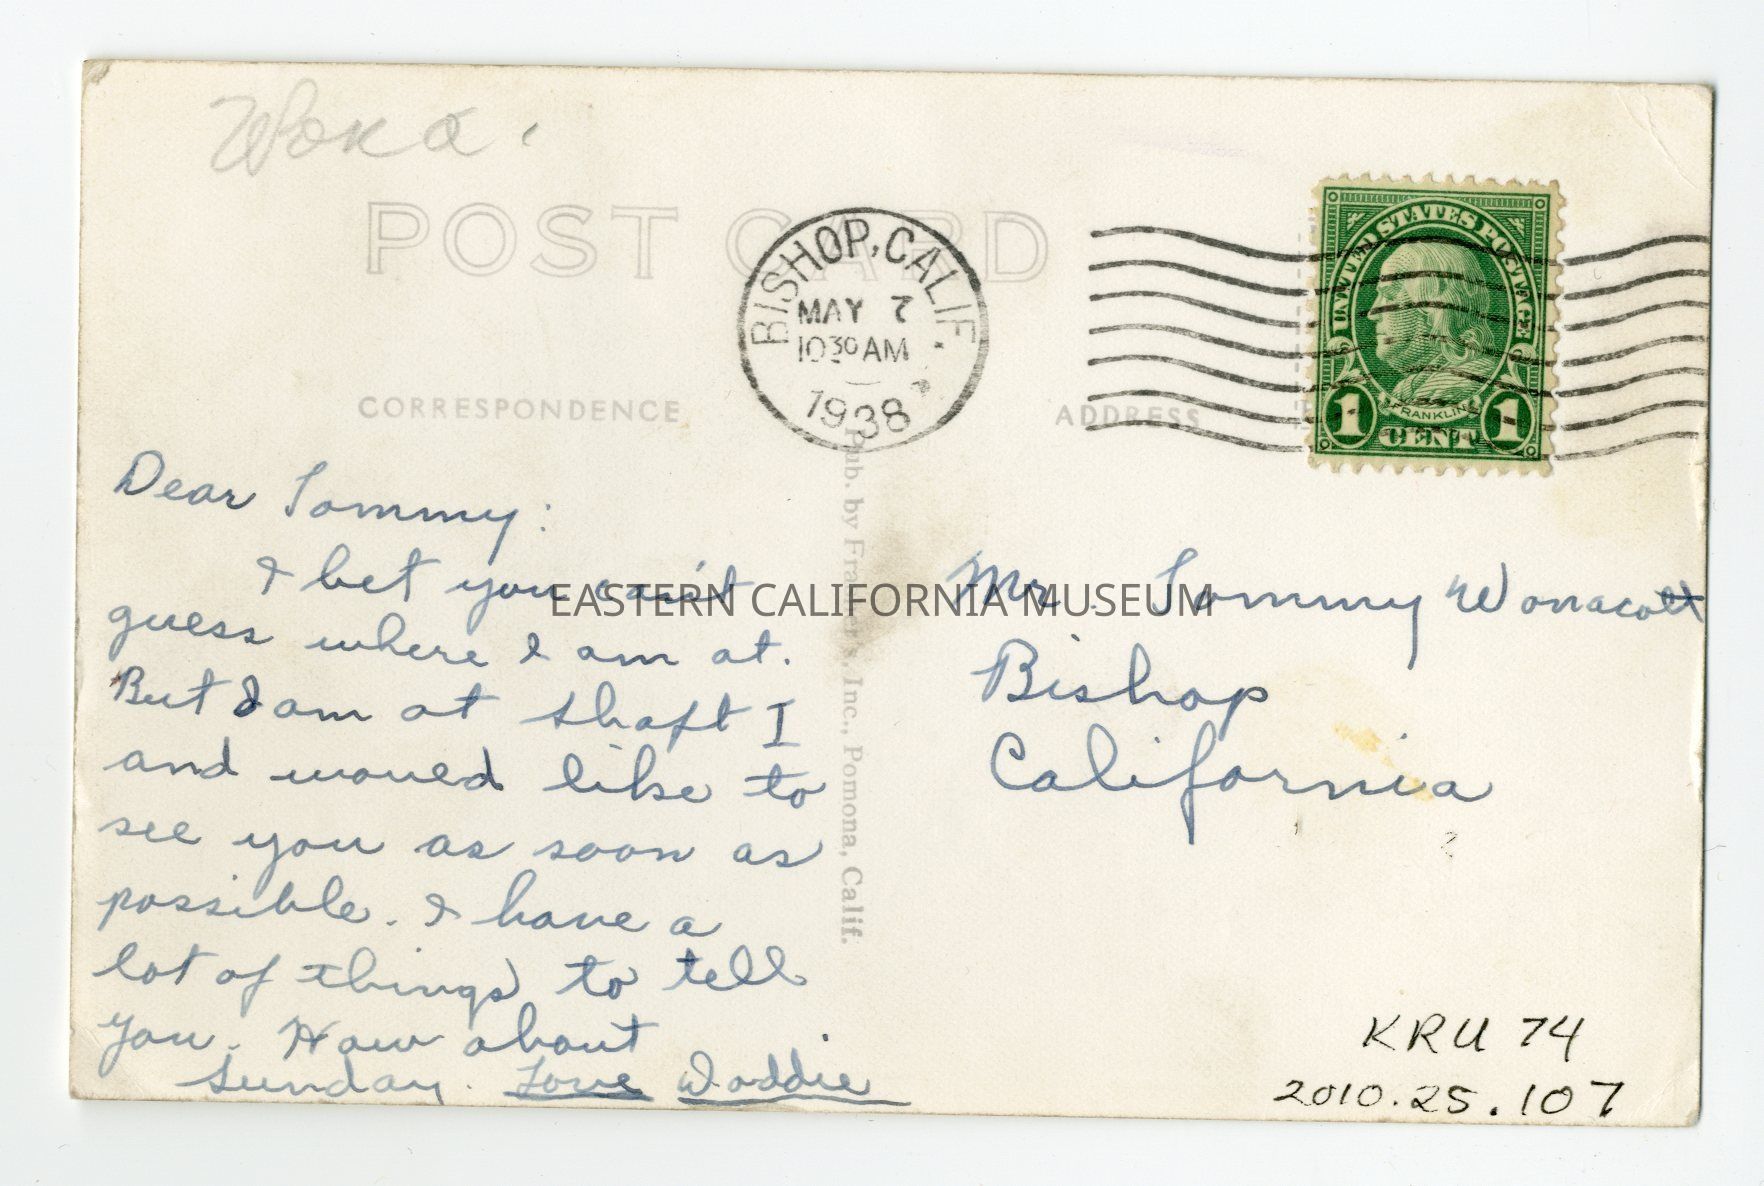 POST CARD
BISHOP, CALIF.
MAY 7
10 30 AM
1938
UNITED STATES POSTAGE
FRANKLIN
1 CENT 1
CORRESPONDENCE
ADDRESS
Dear Tommy:
I bet you can't
guess where I am at.
But I am at shaft I
and woued like to
see you as soon as
possible. I have a
lot of things to tell
you. How about
Sunday. Love Daddie
Pub. by Frashers, Inc., Pomona, Calif.
EASTERN CALIFORNIA MUSEUM
Mr. Tommy Wonacott
Bishop
California
KRU 74
2010.25.107